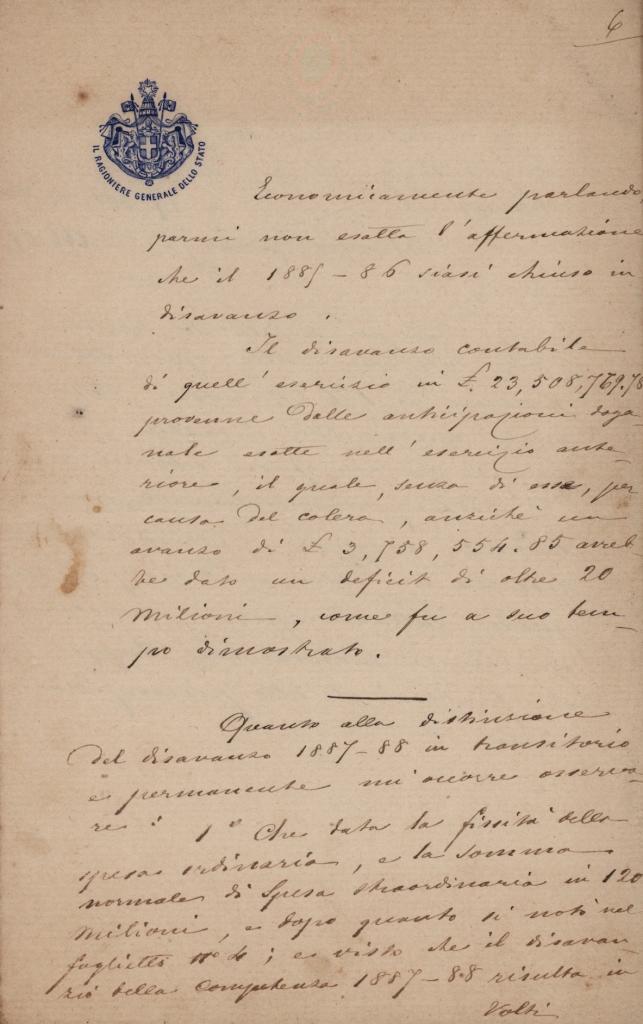 6
IL RAGIONIERE GENERALE DELLO STATO
Economicamente parlando,
parmi non esatta l'affermazione
che il 1885-86 siasi chiuso in
disavanzo.
Il disavanzo contabile
di quell'esercizio in £. 23,508,769.78
provenne dalle anticipazioni doga-
nale esatte nell'esercizio ante-
riore, il quale, senza di esse, per
causa del colera, anzichè un
avanzo di £ 3,758,554.85 avreb-
be dato un deficit di oltre 20
milioni, come fu a suo tem-
po dimostrato.
Quanto alla distinzione
del disavanzo 1887-88 in transitorio
e permanente mi occorre osserva-
re: 1° Che data la fissità della
spesa ordinaria, e la somma
normale di Spesa straordinaria in 120
milioni, e dopo quanto si notò nel
foglietto n° 4; e visto che il disavan-
zo della Competenza 1887-88 risulta in
Volti